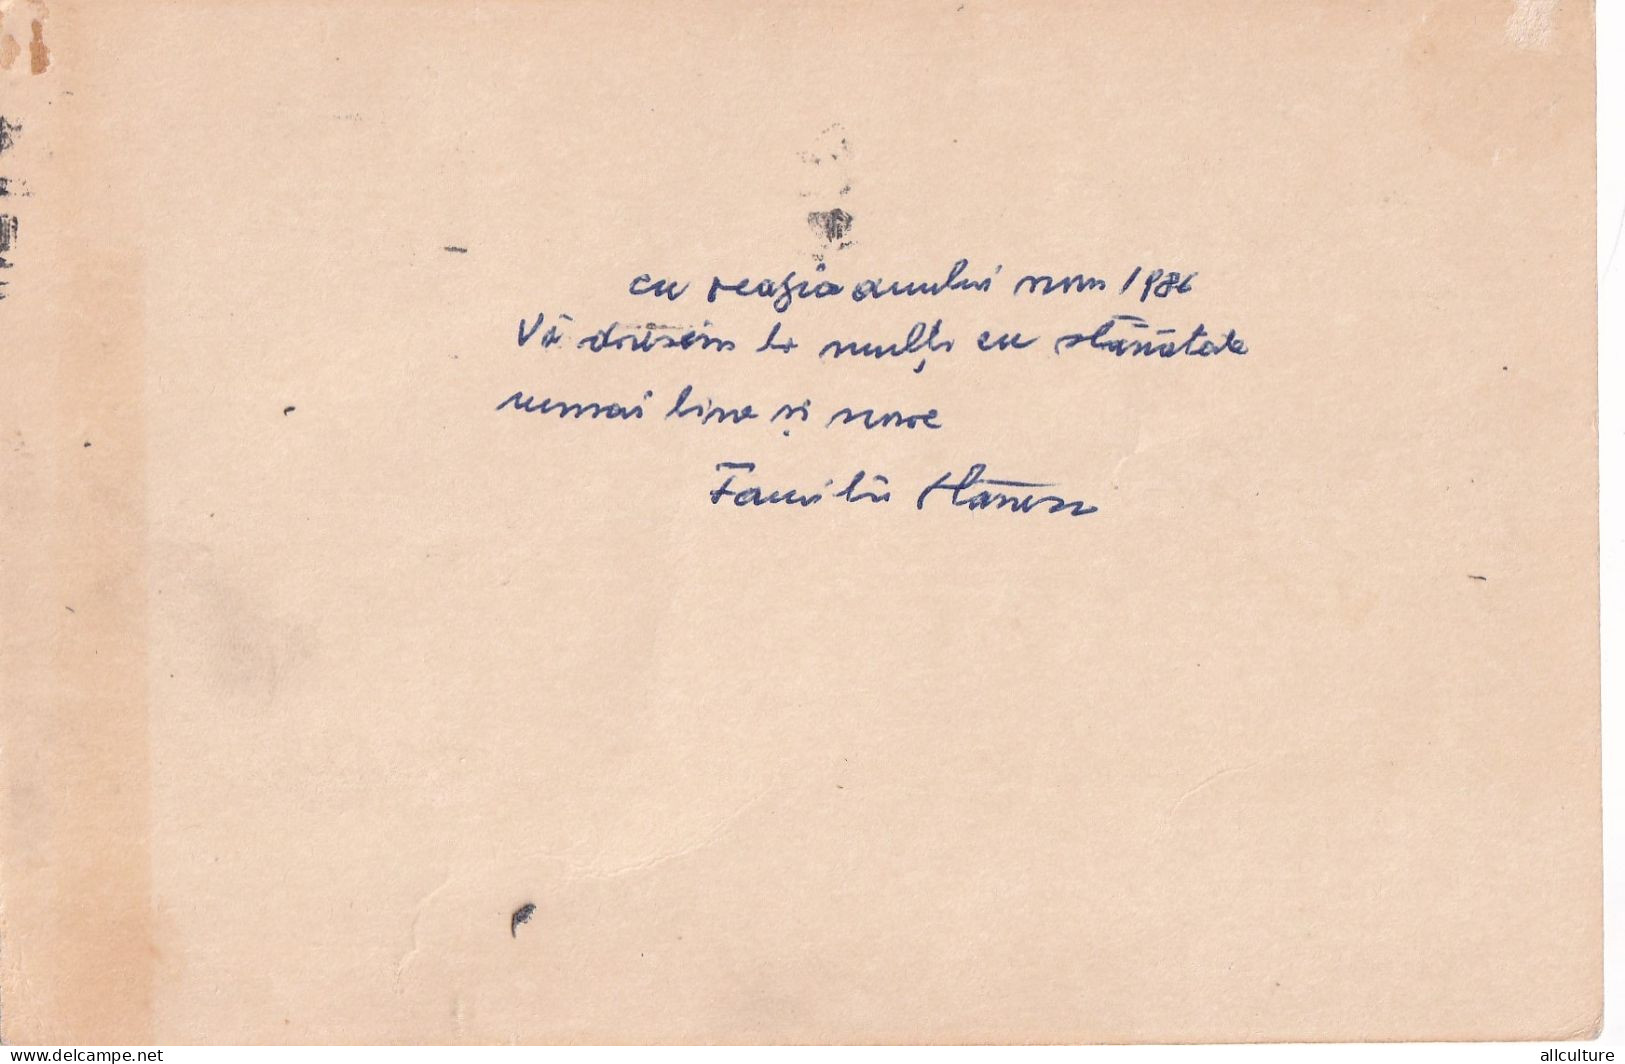 cu reazia anului nou 1986
Vă dorisim la mulți cu stănătate
numai bine și noroc
Familia Stănescu
www.delcampe.net
allculture